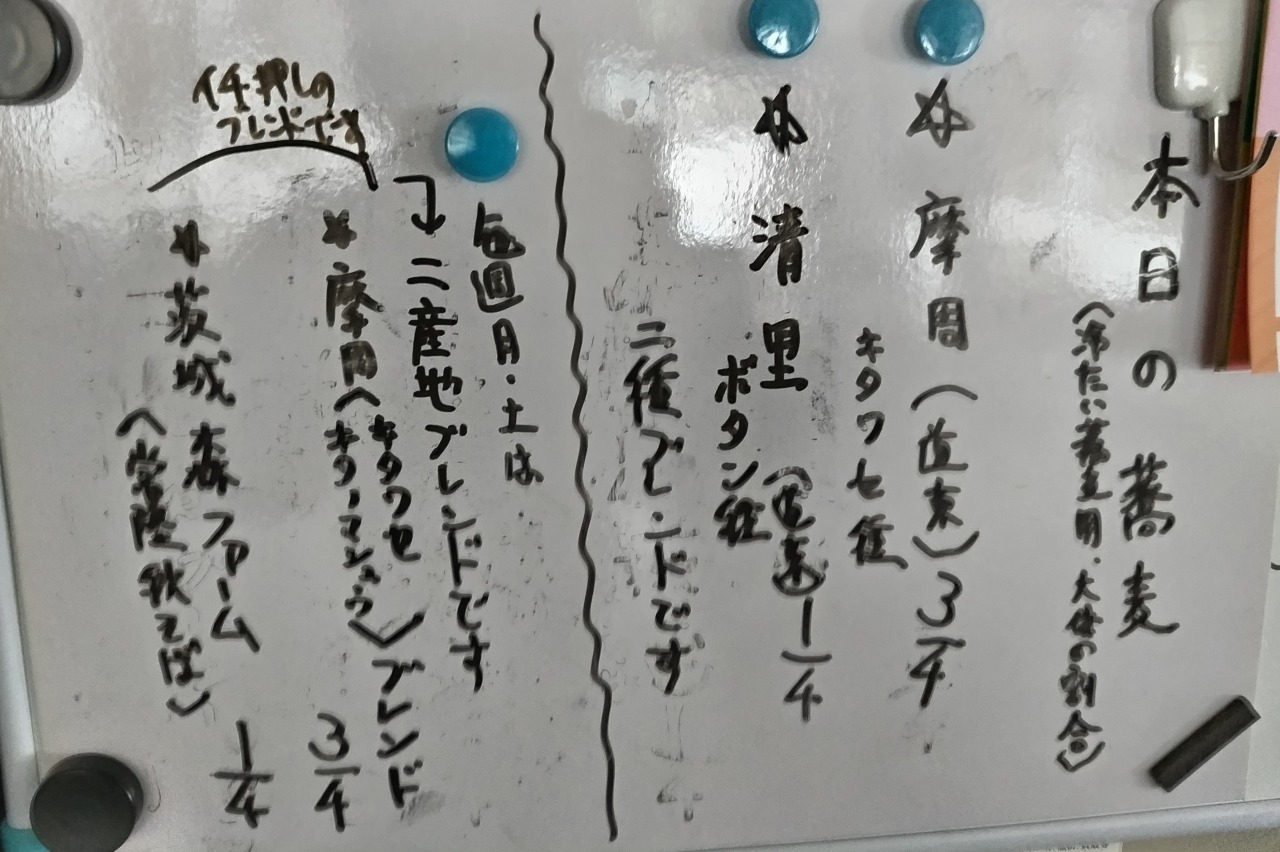 本日の蕎麦
(冷たい蕎麦用・大体の割合)
☆摩周(道東)3/4
キタワセ種
☆清里(道東)1/4
ボタン種
二種ブレンドです
毎週月・土は
→二産地ブレンドです
☆摩周(キタワセ キタノマシュウ)ブレンド 3/4
☆茨城 森ファーム 1/4
(常陸秋そば)
イチ押しの
ブレンドです